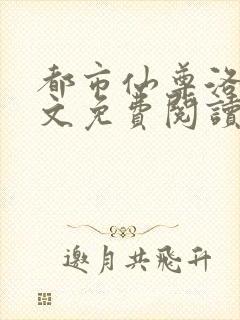 都市仙尊洛
文免費閱讀
邀月共飛升